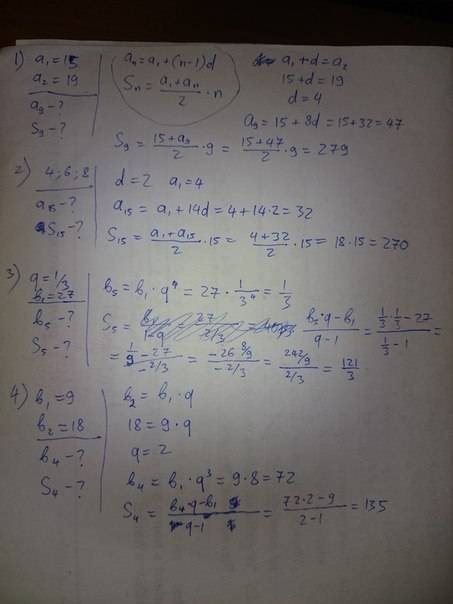 1) a₁=15
a₂=19
a₉-?
S₉-?
aₙ=a₁+(n-1)d
Sₙ=(a₁+aₙ)/2·n
a₁+d=a₂
15+d=19
d=4
a₉=15+8d=15+32=47
S₉=(15+a₉)/2·9=(15+47)/2·9=279
2) 4;6;8
a₁₅-?
S₁₅-?
d=2 a₁=4
a₁₅=a₁+14d=4+14·2=32
S₁₅=(a₁+a₁₅)/2·15=(4+32)/2·15=18·15=270
3) q=1/3
b₁=27
b₅-?
S₅-?
b₅=b₁·q⁴=27·1/3⁴=1/3
S₅=(b₅·q-b₁)/(q-1)=(1/3·1/3-27)/(1/3-1)=
=(1/9-27)/(-2/3)=(-26 8/9)/(-2/3)=(242/9)/(2/3)=121/3
4) b₁=9
b₂=18
b₄-?
S₄-?
b₂=b₁·q
18=9·q
q=2
b₄=b₁·q³=9·8=72
S₄=(b₄·q-b₁)/(q-1)=(72·2-9)/(2-1)=135